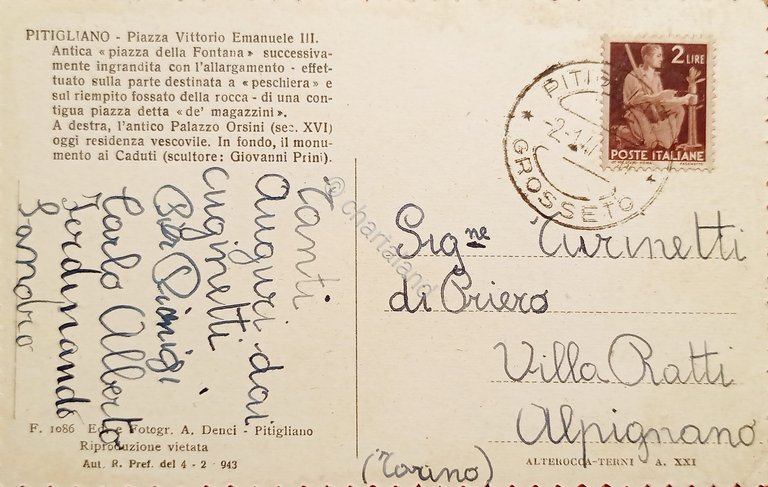 PITIGLIANO - Piazza Vittorio Emanuele III.
Antica « piazza della Fontana » successiva-
mente ingrandita con l'allargamento - effet-
tuato sulla parte destinata a « peschiera » e
sul riempito fossato della rocca - di una con-
tigua piazza detta « de' magazzini ».
A destra, l'antico Palazzo Orsini (sec. XVI)
oggi residenza vescovile. In fondo, il monu-
mento ai Caduti (scultore: Giovanni Prini).
Tanti
auguri dai
cuginetti
Pier Dionigi
Carlo Alberto
Ferdinando
Sandro
F. 1086 Ed. e Fotogr. A. Denci - Pitigliano
Riproduzione vietata
Aut. R. Pref. del 4 - 2 - 943
2 LIRE
POSTE ITALIANE
PITI
GROSSETO
Sig.ne Turinetti
di Priero
Villa Ratti
Alpignano
(Torino)
ALTEROCCA-TERNI A. XXI
© chartaland